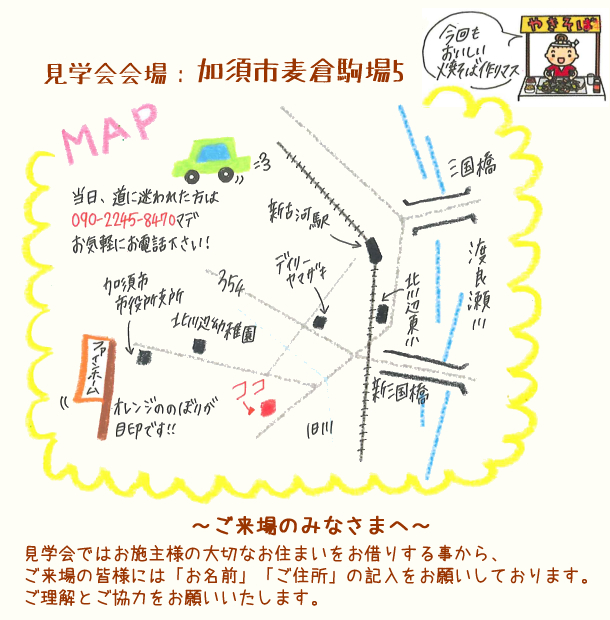 やきそば
今回も
おいしい
焼そば作りマス
見学会会場：加須市麦倉駒場5
MAP
当日、道に迷われた方は
090-2245-8470マデ
お気軽にお電話下さい！
三国橋
新古河駅
渡良瀬川
デイリー
ヤマザキ
加須市
市役所支所
354
北川辺幼稚園
北川辺東小
ファインホーム
ココ
新三国橋
オレンジののぼりが
目印です!!
旧川
～ご来場のみなさまへ～
見学会ではお施主様の大切なお住まいをお借りする事から、
ご来場の皆様には「お名前」「ご住所」の記入をお願いしております。
ご理解とご協力をお願いいたします。